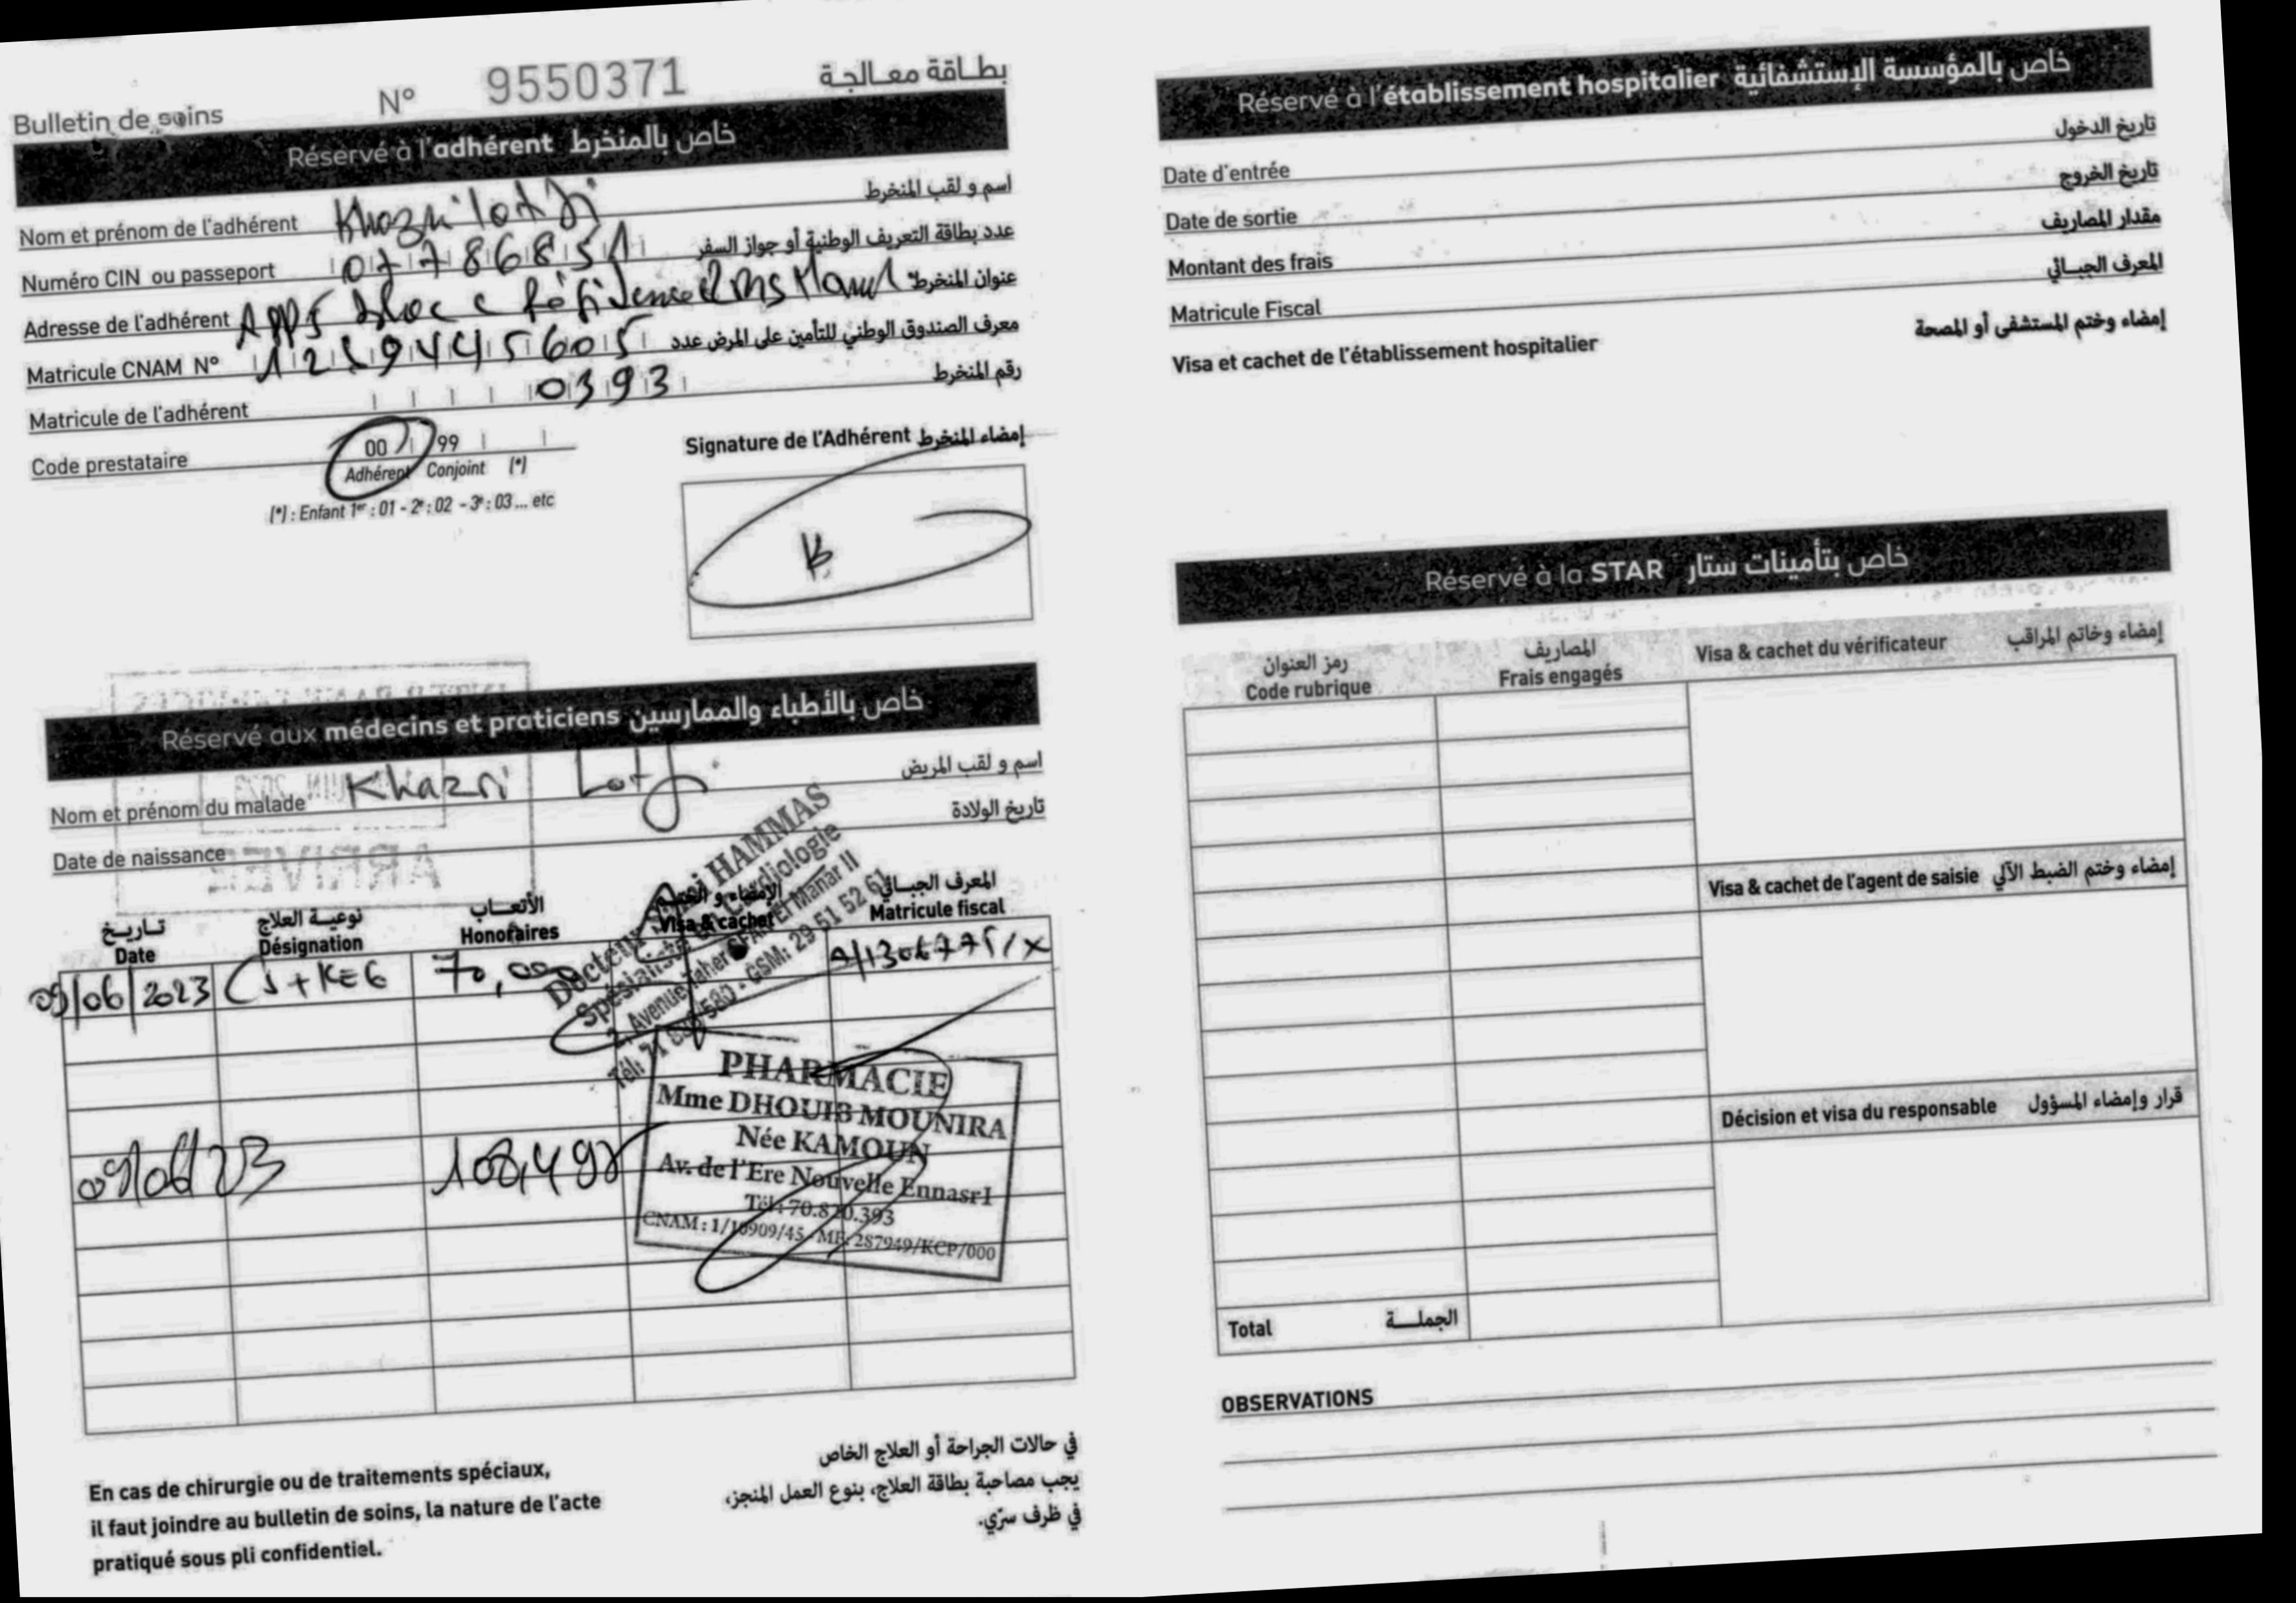 Bulletin de soins N° 9550371 بطاقة معالجة
Réservé à l'adhérent خاص بالمنخرط
Nom et prénom de l'adhérent Khazri lotfi اسم و لقب المنخرط
Numéro CIN ou passeport 07786851 عدد بطاقة التعريف الوطنية أو جواز السفر
Adresse de l'adhérent App5 bloc c Résidence عنوان المنخرط
Matricule CNAM N° معرف الصندوق الوطني للتأمين على المرض عدد
Matricule de l'adhérent 0393 رقم المنخرط
Code prestataire 00 99
Adhérent Conjoint (*)
(*) : Enfant 1er : 01 - 2e : 02 - 3e : 03 ... etc
Signature de l'Adhérent إمضاء المنخرط
Réservé aux médecins et praticiens خاص بالأطباء والممارسين
Nom et prénom du malade Khazri Lotfi اسم و لقب المريض
Date de naissance تاريخ الولادة
ARRIVEE
تاريخ نوعية العلاج الأتعاب الإمضاء و الختم المعرف الجبائي
Date Désignation Honoraires Visa & cachet Matricule fiscal
09/06/2023 Cs + KE6 70,000
Docteur HAMMAS
Spécialiste Cardiologie
2, Avenue Taher SFAR El Manar II
GSM: 29 51 52 61
09/06/23 108,498
PHARMACIE
Mme DHOUIB MOUNIRA
Née KAMOUN
Av. de l'Ere Nouvelle Ennasr I
Tél : 70.820.393
CNAM : 1/10909/45 - MF: 287949/KCP/000
En cas de chirurgie ou de traitements spéciaux,
il faut joindre au bulletin de soins, la nature de l'acte
pratiqué sous pli confidentiel.
في حالات الجراحة أو العلاج الخاص
يجب مصاحبة بطاقة العلاج، بنوع العمل المنجز،
في ظرف سرّي.
Réservé à l'établissement hospitalier خاص بالمؤسسة الإستشفائية
Date d'entrée تاريخ الدخول
Date de sortie تاريخ الخروج
Montant des frais مقدار المصاريف
Matricule Fiscal المعرف الجبائي
Visa et cachet de l'établissement hospitalier إمضاء وختم المستشفى أو المصحة
Réservé à la STAR خاص بتأمينات ستار
رمز العنوان المصاريف
Code rubrique Frais engagés
Visa & cachet du vérificateur إمضاء وخاتم المراقب
Visa & cachet de l'agent de saisie إمضاء وختم الضبط الآلي
Décision et visa du responsable قرار وإمضاء المسؤول
Total الجملة
OBSERVATIONS